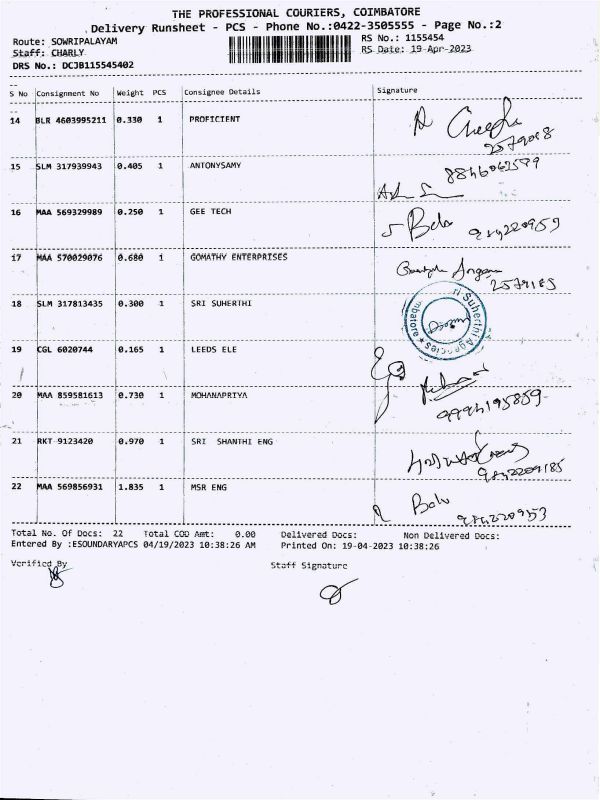 THE PROFESSIONAL COURIERS, COIMBATORE
Delivery Runsheet - PCS - Phone No.:0422-3505555 - Page No.:2
Route: SOWRIPALAYAM RS No.: 1155454
Staff: CHARLY RS Date: 19-Apr-2023
DRS No.: DCJB115545402
S No Consignment No Weight PCS Consignee Details Signature
14 BLR 4603995211 0.330 1 PROFICIENT
15 SLM 317939943 0.405 1 ANTONYSAMY
16 MAA 569329989 0.250 1 GEE TECH
17 MAA 570029076 0.680 1 GOMATHY ENTERPRISES
2579185
18 SLM 317813435 0.300 1 SRI SUHERTHI
Suherthi Agencies
19 CGL 6020744 0.165 1 LEEDS ELE
20 MAA 859581613 0.730 1 MOHANAPRIYA
21 RKT 9123420 0.970 1 SRI SHANTHI ENG
9842209185
22 MAA 569856931 1.835 1 MSR ENG
Total No. Of Docs: 22 Total COD Amt: 0.00 Delivered Docs: Non Delivered Docs:
Entered By :ESOUNDARYAPCS 04/19/2023 10:38:26 AM Printed On: 19-04-2023 10:38:26
Verified By Staff Signature